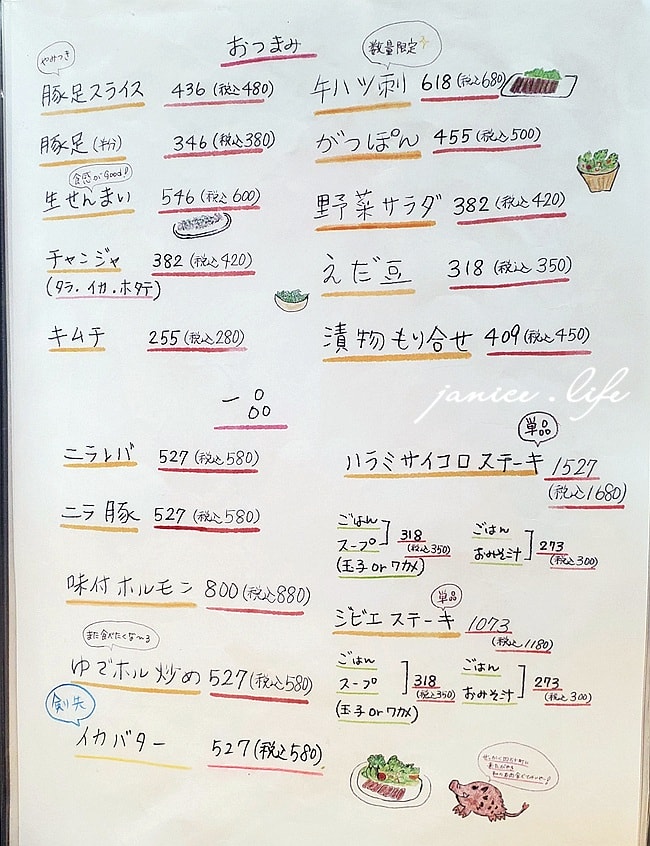 おつまみ
やみつき
豚足スライス 436(税込480)
豚足(半分) 346(税込380)
食感がGood!
生せんまい 546(税込600)
チャンジャ 382(税込420)
(タラ・イカ・ホタテ)
キムチ 255(税込280)
数量限定
牛ハツ刺 618(税込680)
がつぽん 455(税込500)
野菜サラダ 382(税込420)
えだ豆 318(税込350)
漬物もり合せ 409(税込450)
janice.life
一品
ニラレバ 527(税込580)
ニラ豚 527(税込580)
味付ホルモン 800(税込880)
また食べたくな〜る
ゆでホル炒め 527(税込580)
剣先
イカバター 527(税込580)
単品
ハラミサイコロステーキ 1527
(税込1680)
ごはん
スープ 318
(税込350)
(玉子orワカメ)
ごはん
おみそ汁 273
(税込300)
単品
ジビエステーキ 1073
(税込1180)
ごはん
スープ 318
(税込350)
(玉子orワカメ)
ごはん
おみそ汁 273
(税込300)